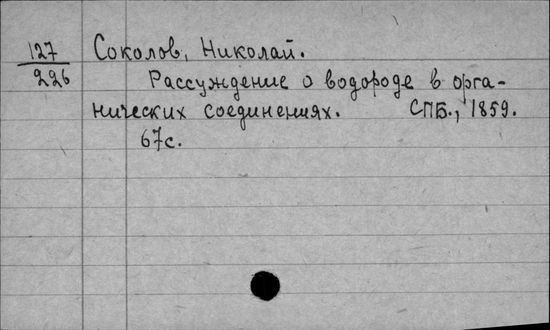 127 Соколов, Николай.
226 Рассуждение о водороде в орга-
нических соединениях. СПБ., 1859.
67с.